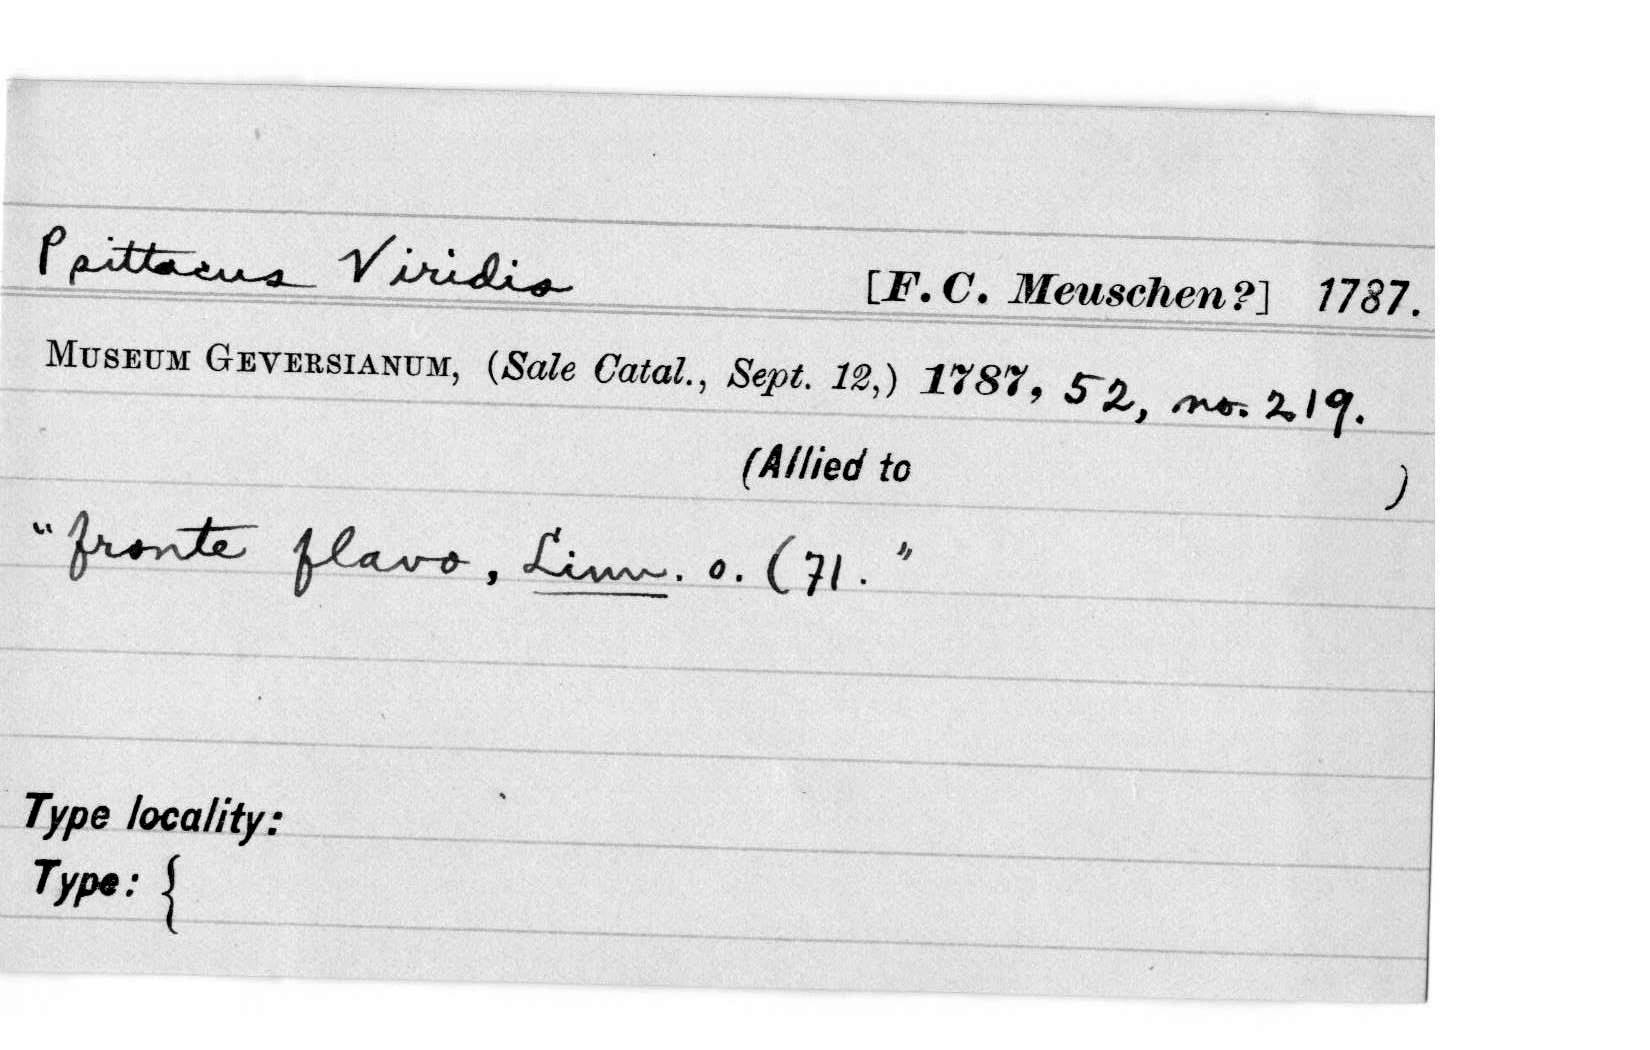 Psittacus Viridis [F. C. Meuschen?] 1787.
MUSEUM GEVERSIANUM, (Sale Catal., Sept. 12,) 1787, 52, no. 219.
(Allied to )
"fronte flavo, Linn. o. (71."
Type locality:
Type: {